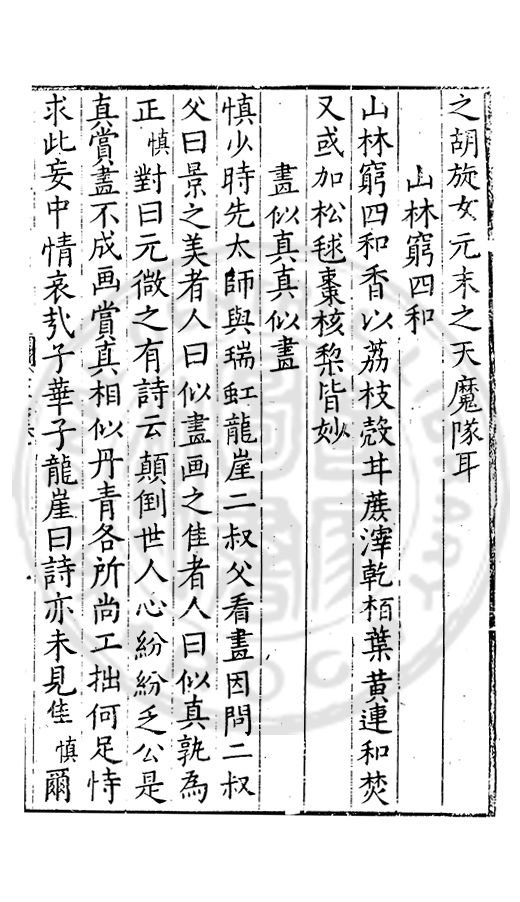 之胡旋女元末之天魔隊耳
山林窮四和
山林窮四和香以荔枝殼甘蔗滓乾栢葉黄連和焚
又或加松毬棗核棃皆妙
畫似真真似畫
慎少時先太師與瑞虹龍崖二叔父看畫因問二叔
父曰景之美者人曰似畫画之佳者人曰似真孰為
正慎對曰元微之有詩云顛倒世人心紛紛乏公是
真賞畫不成画賞真相似丹青各所尚工拙何足恃
求此妄中情哀㢤子華子龍崖曰詩亦未見佳慎爾